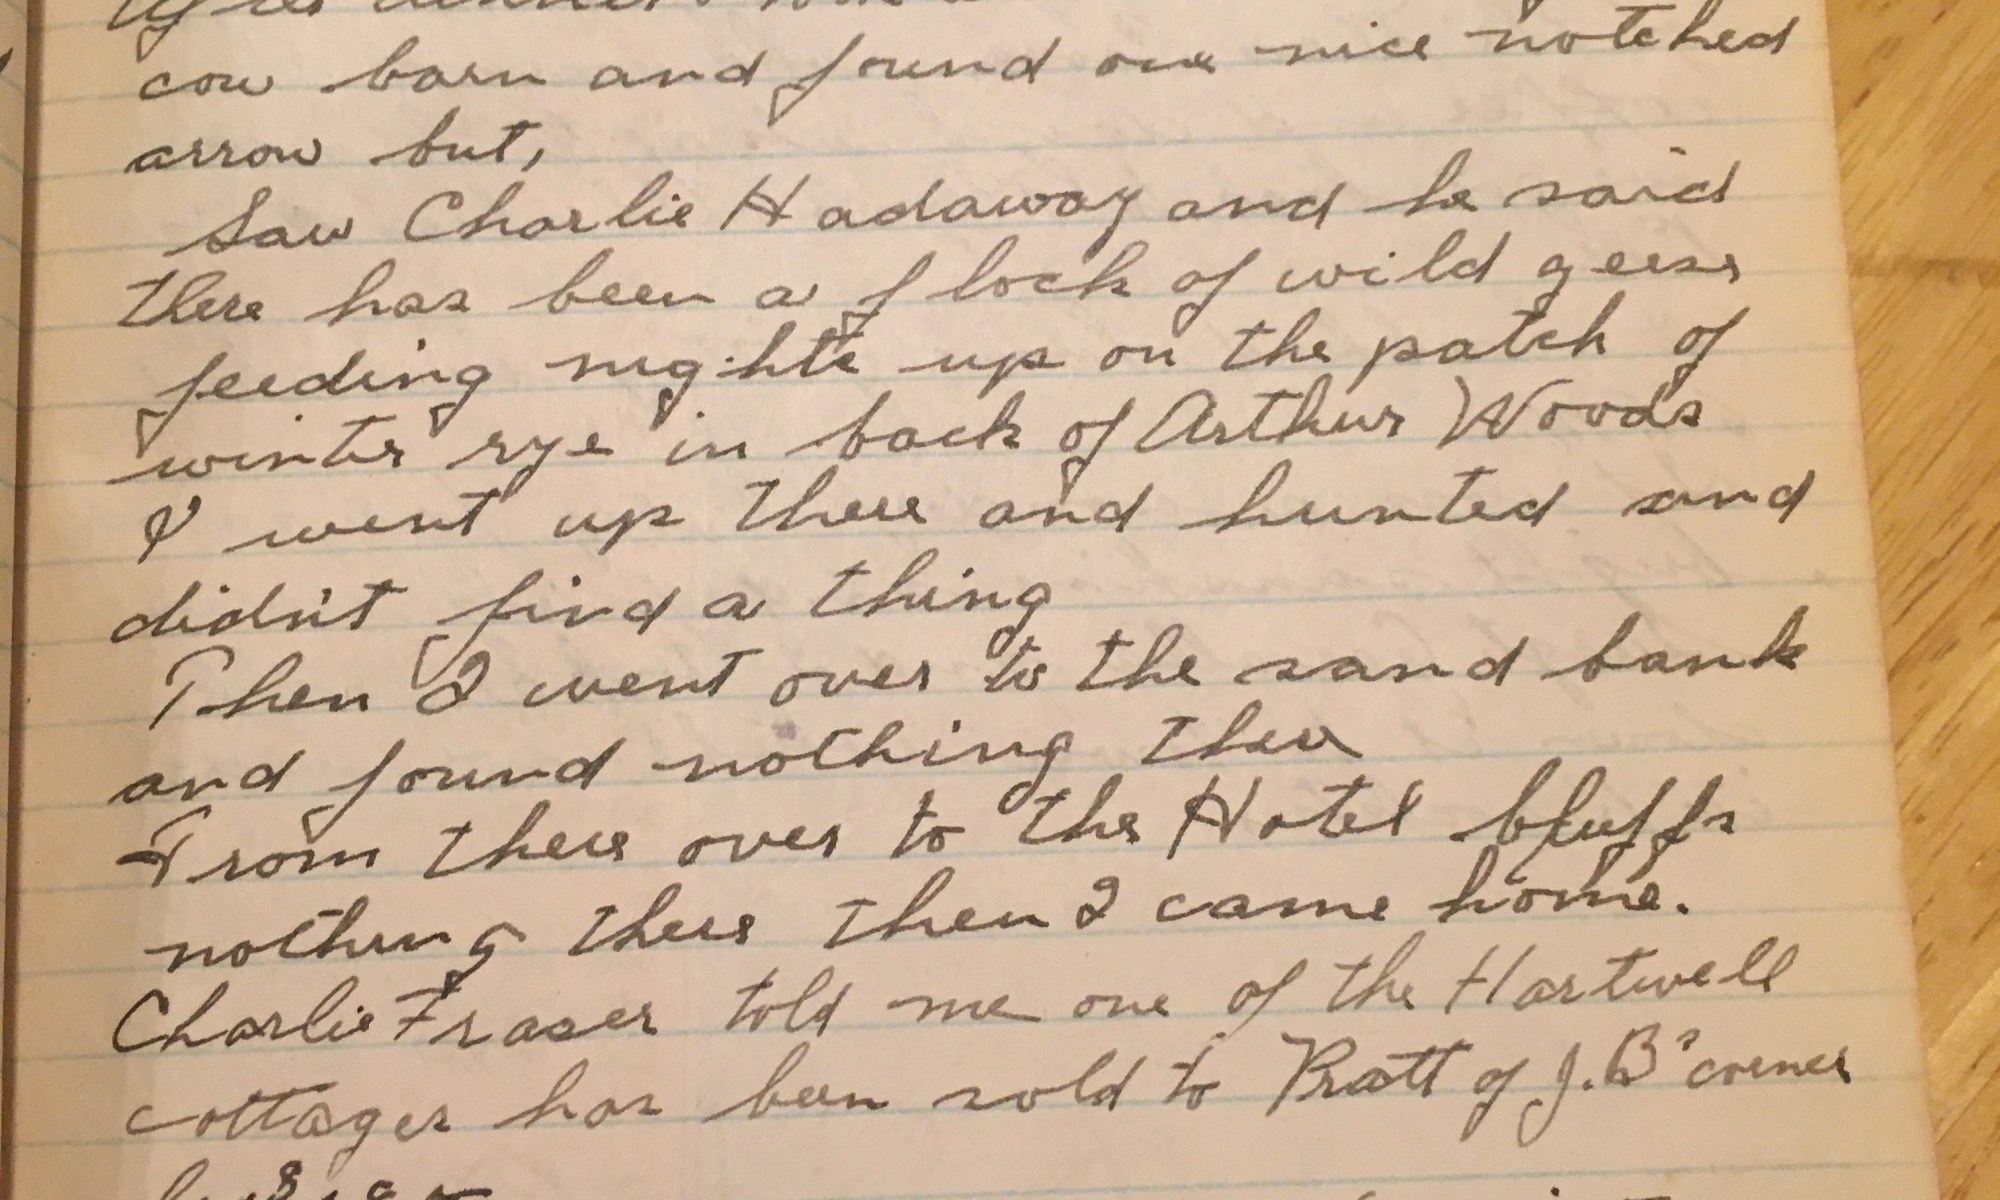 cow barn and found one nice notched
arrow but,
Saw Charlie Hadaway and he said
there has been a flock of wild geese
feeding nights up on the patch of
winter rye in back of Arthur Woods
I went up there and hunted and
didn't find a thing
Then I went over to the sand bank
and found nothing there
From there over to the Hotel bluffs
nothing there then I came home.
Charlie Fraser told me one of the Hartwell
cottages has been sold to Pratt of J.B's corner